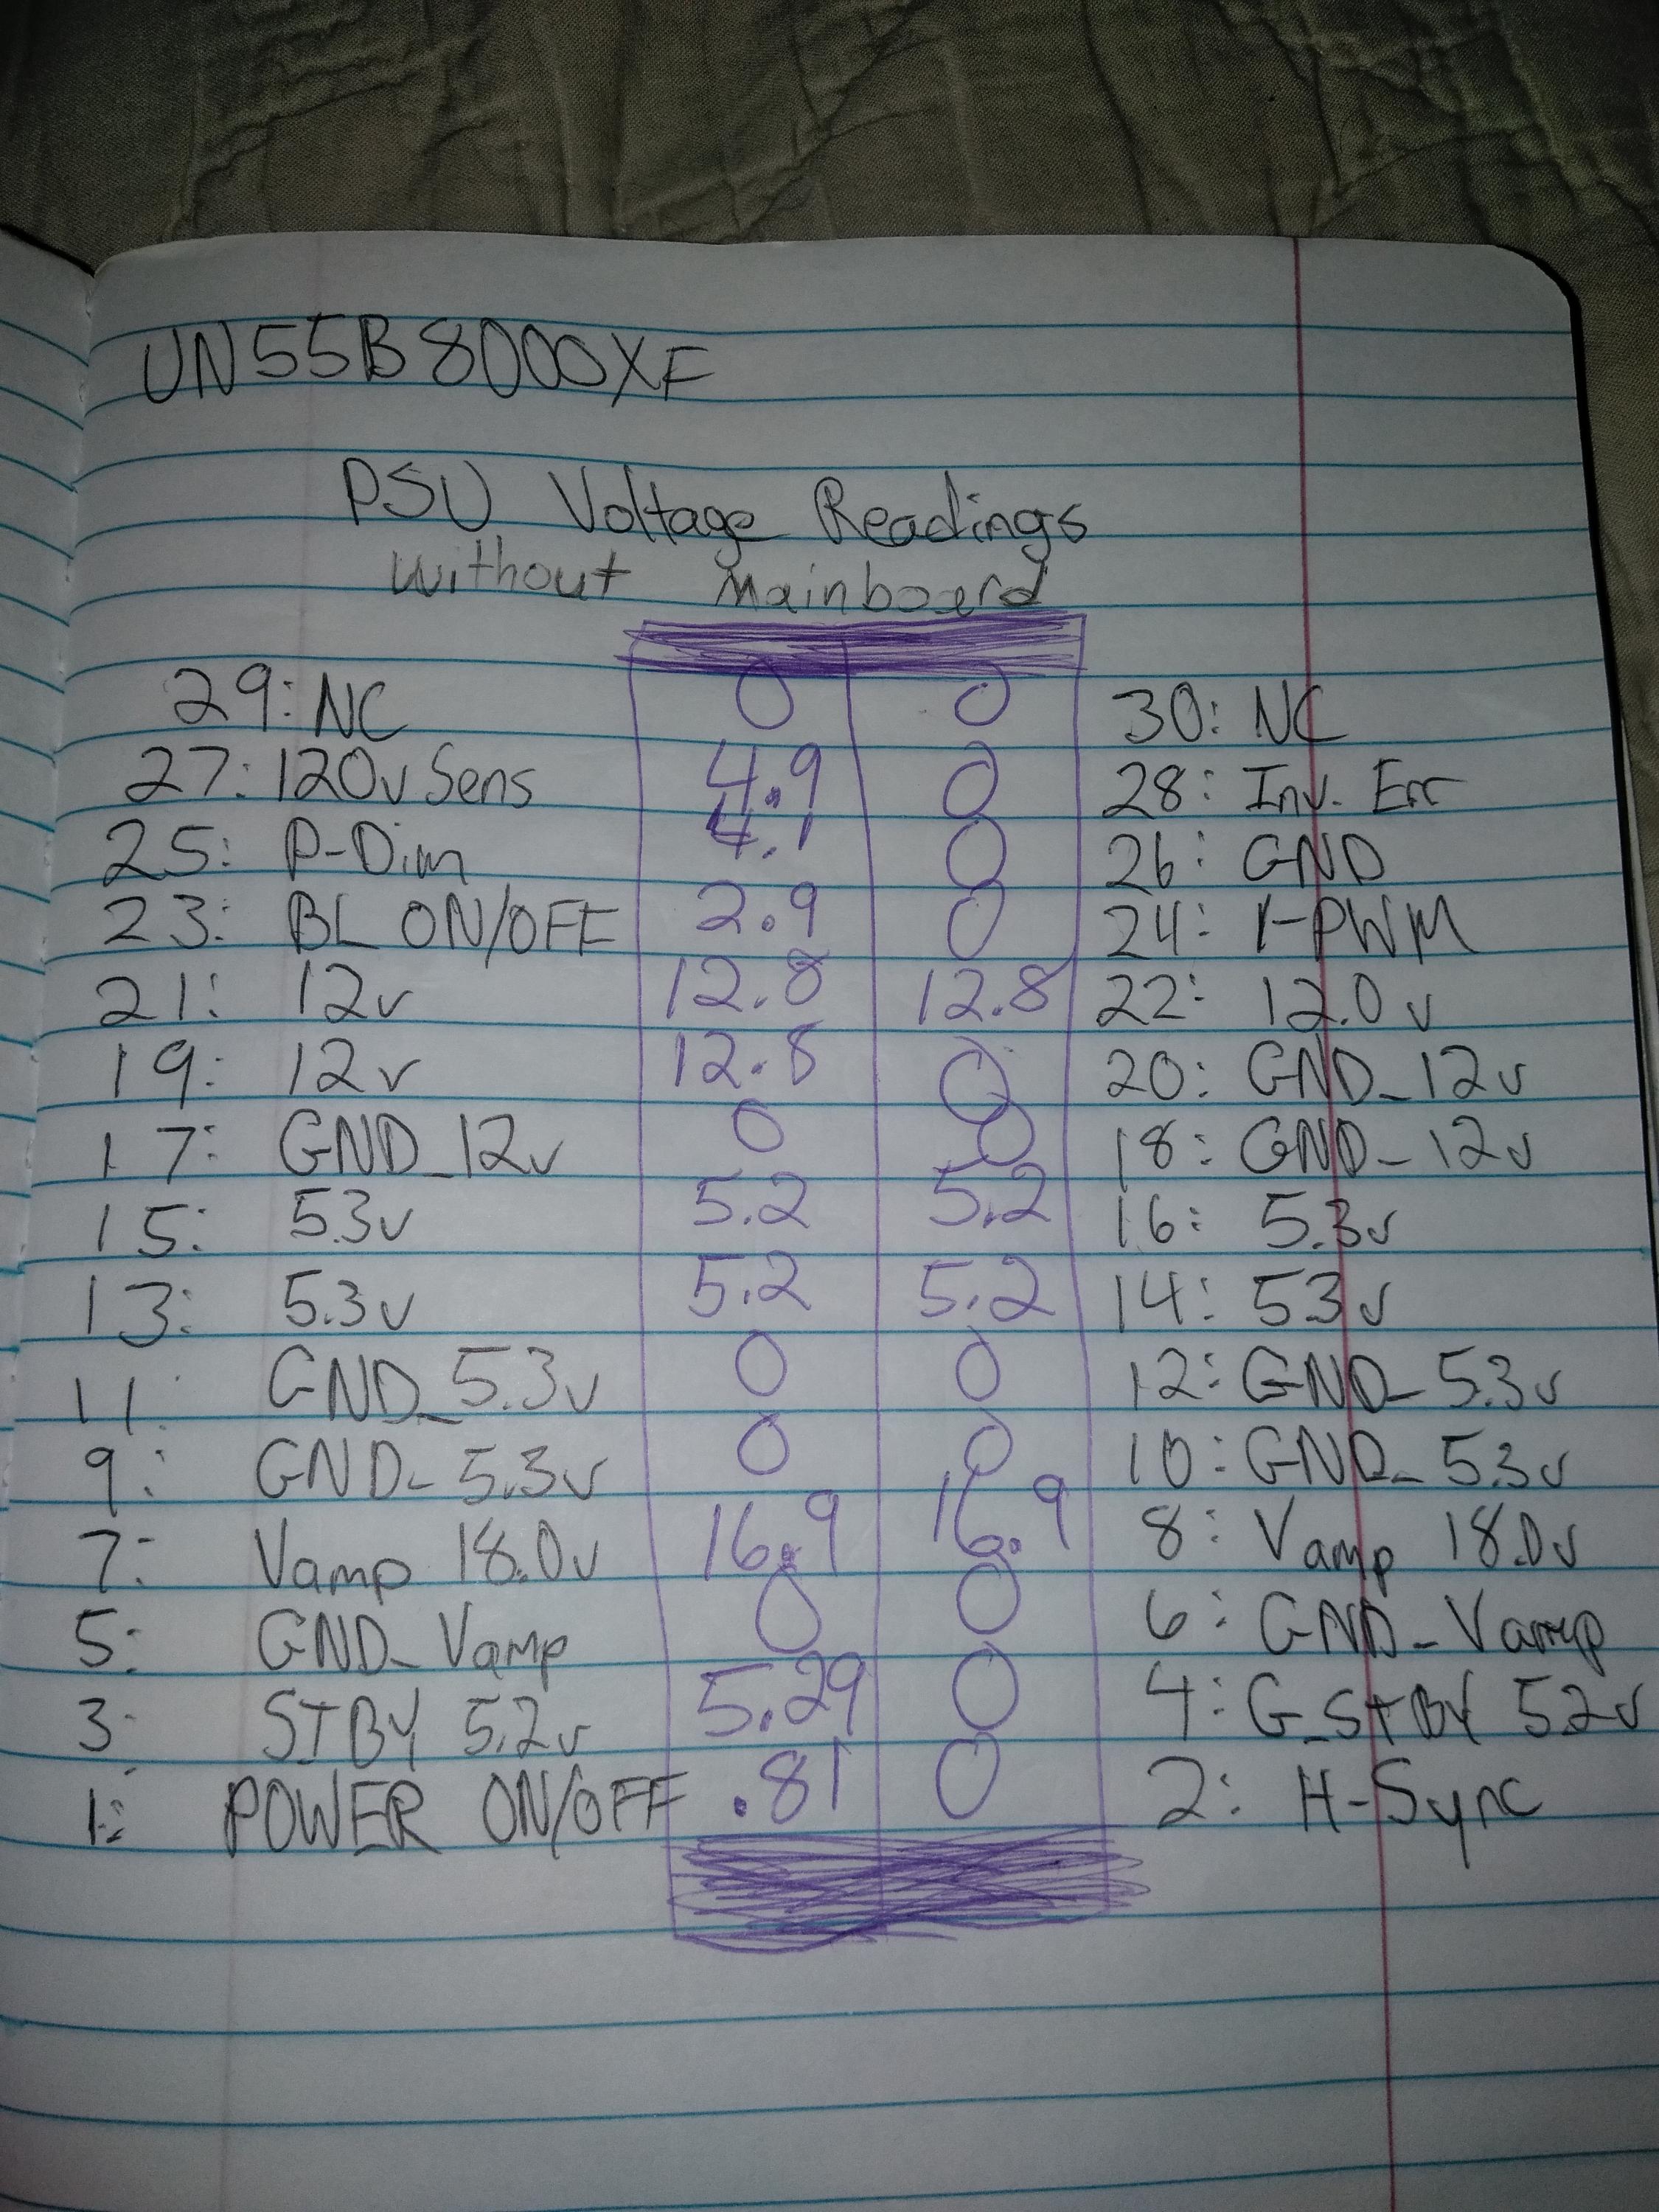 UN55B8000XF
PSU Voltage Readings
without Mainboard
29: NC 0 0 30: NC
27: 120v Sens 4.9 0 28: Inv. Err
25: P-Dim 4.1 0 26: GND
23: BL ON/OFF 2.9 0 24: I-PWM
21: 12v 12.8 12.8 22: 12.0v
19: 12v 12.8 0 20: GND_12v
17: GND_12v 0 0 18: GND-12v
15: 5.3v 5.2 5.2 16: 5.3v
13: 5.3v 5.2 5.2 14: 5.3v
11: GND_5.3v 0 0 12: GND-5.3v
9: GND-5.3v 0 0 10: GND-5.3v
7: Vamp 18.0v 16.9 16.9 8: Vamp 18.0v
5: GND-Vamp 0 0 6: GND-Vamp
3: STBY 5.2v 5.29 0 4: G_STBY 5.2v
1: POWER ON/OFF .81 0 2: H-Sync